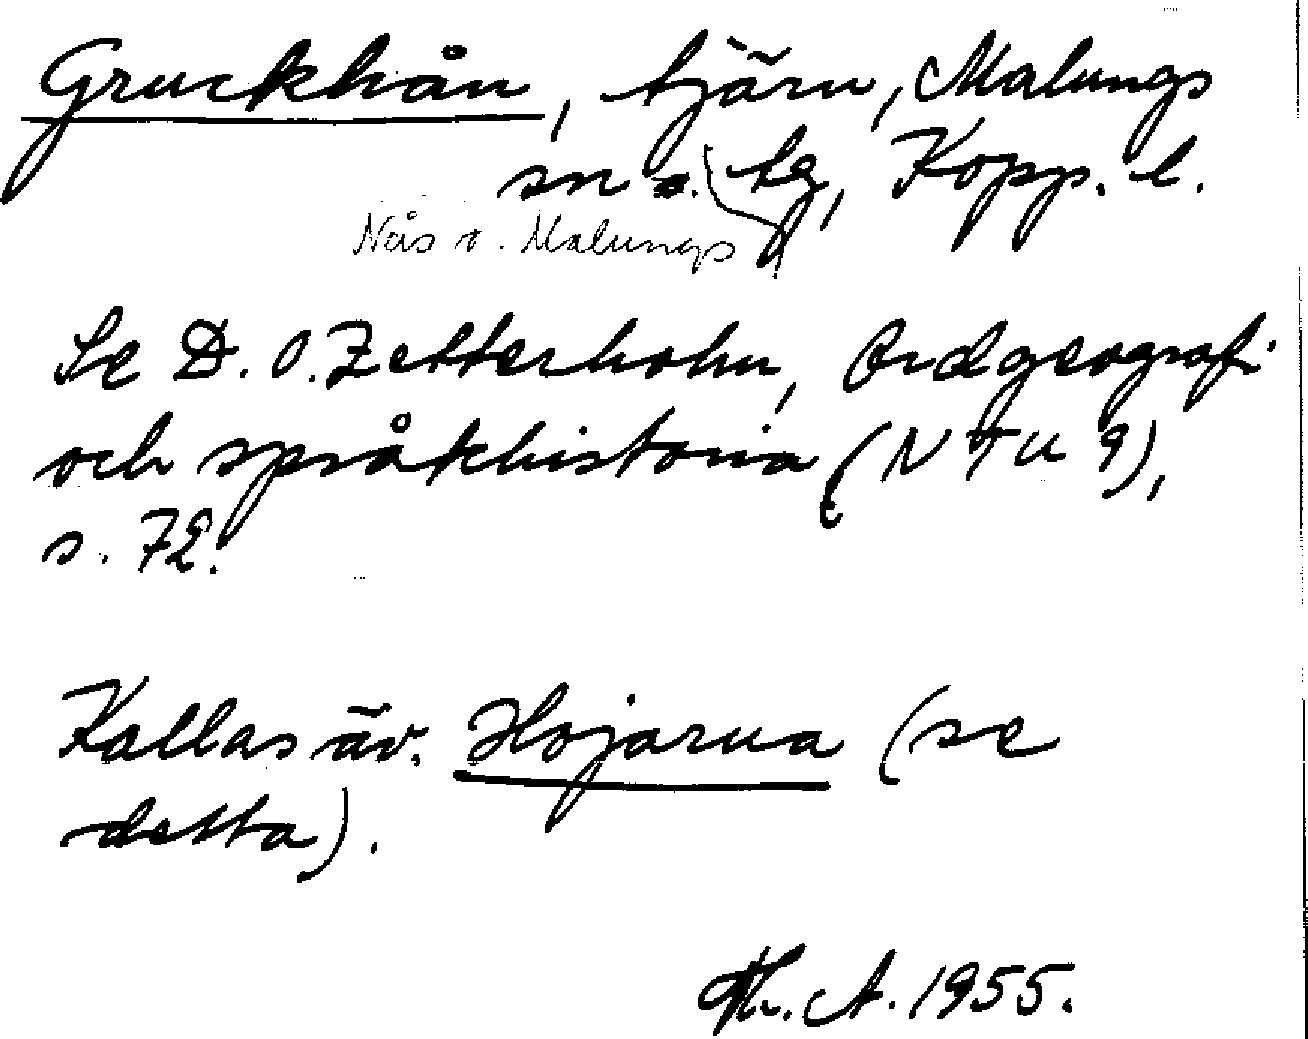 Gruckhån, tjärn, Malungs
sn o. tg, Kopp. l.
Nås o. Malungs
Se D. O. Zetterholm, Ordgeografi
och språkhistoria (NTU 9),
s. 72.
Kallas äv. Hojarna (se
detta).
Th. A. 1955.